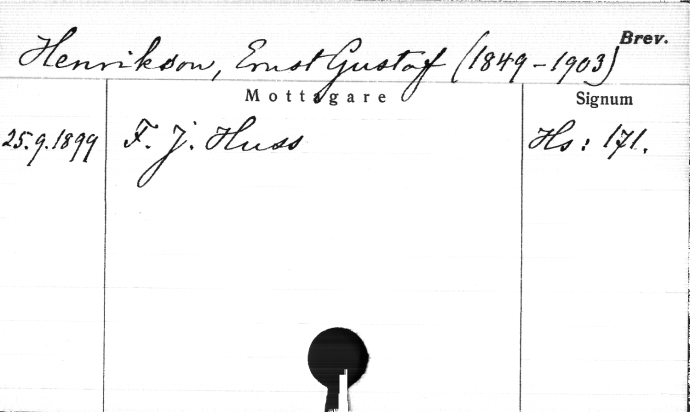 Brev.
Henrikson, Ernst Gustaf (1849-1903)
Mottagare Signum
25.9.1899 F. J. Huss Hs: 171.